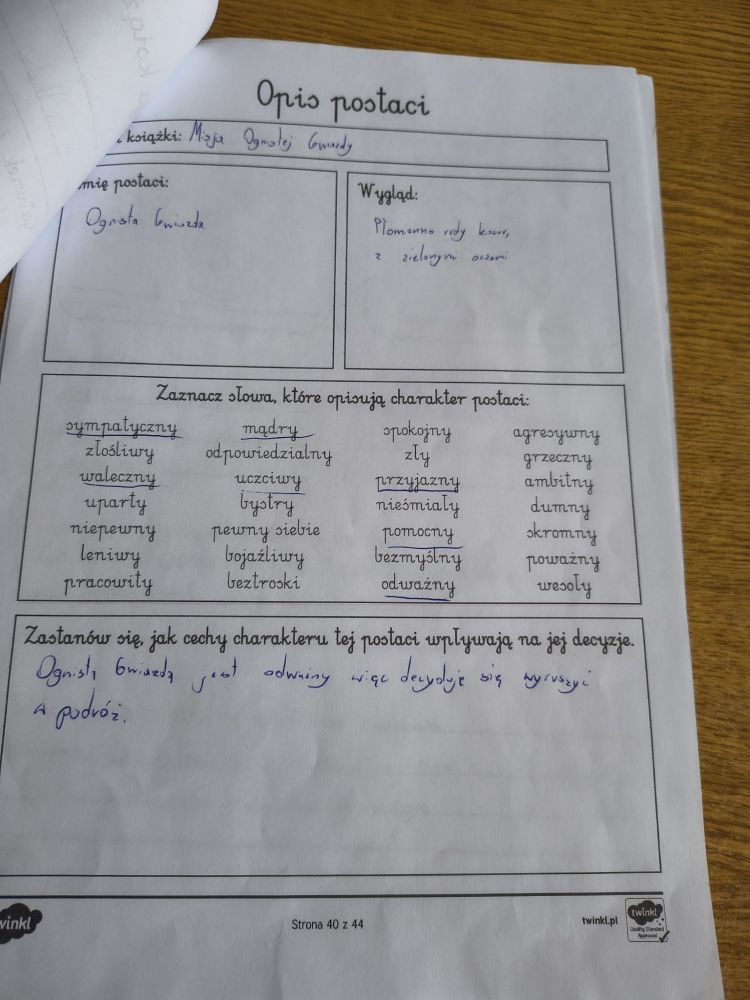 Opis postaci
książki: Misja Ognistej Gwiazdy
mię postaci:
Ognista Gwiazda
Wygląd:
Płomienno rudy kocur,
z zielonymi oczami
Zaznacz słowa, które opisują charakter postaci:
sympatyczny mądry spokojny agresywny
złośliwy odpowiedzialny zły grzeczny
waleczny uczciwy przyjazny ambitny
uparty bystry nieśmiały dumny
niepewny pewny siebie pomocny skromny
leniwy bojaźliwy bezmyślny poważny
pracowity beztroski odważny wesoły
Zastanów się, jak cechy charakteru tej postaci wpływają na jej decyzje.
Ognistą Gwiazdą jest odważny więc decyduję się wyruszyć
w podróż.
winkl
Strona 40 z 44
twinkl.pl
twinkl
Quality Standard
Approved